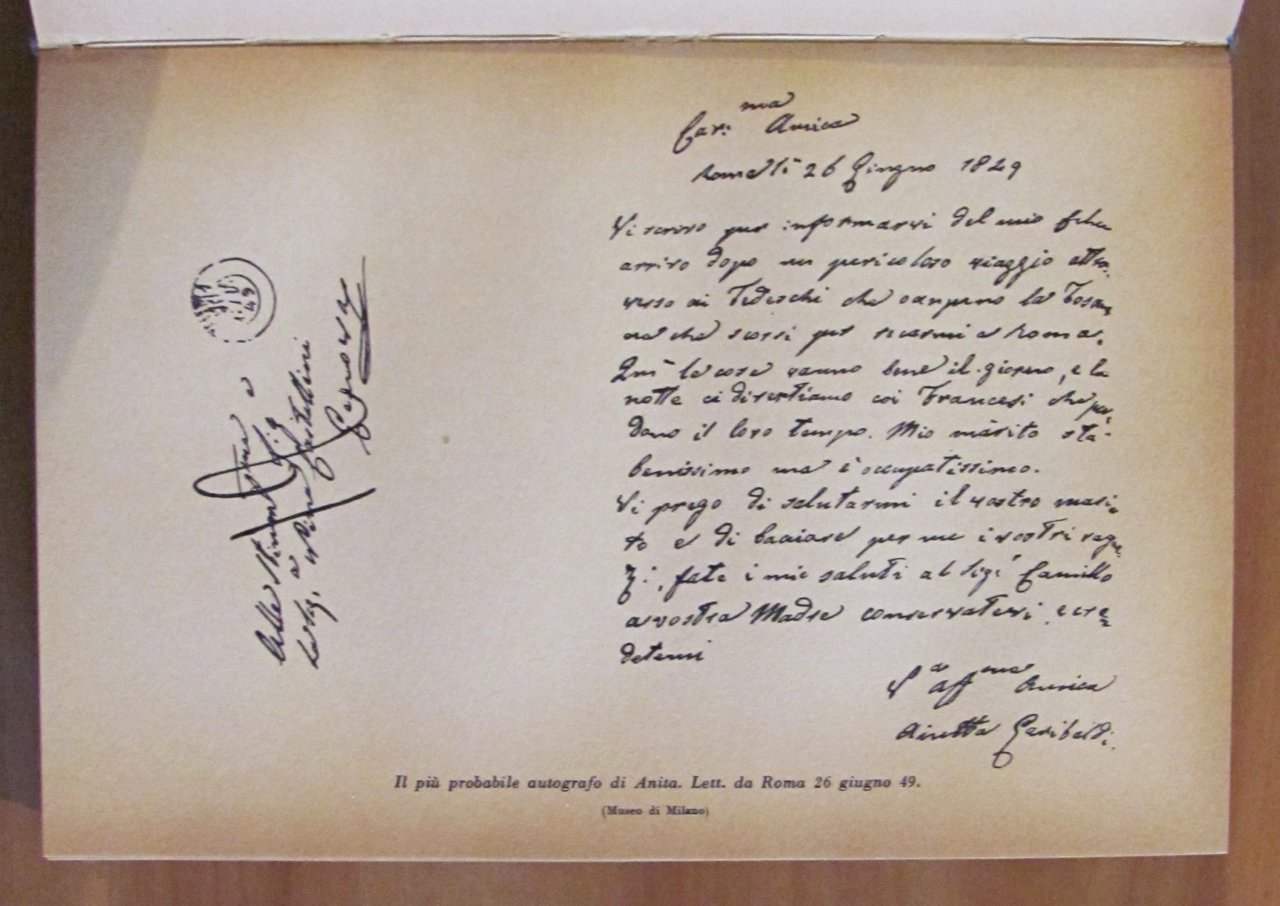 Car:ma Amica
Roma li 26 Giugno 1849
Vi scrivo per informarvi del mio felice
arrivo dopo un pericoloso viaggio attra-
verso ai Tedeschi che occupano la Tosca
na che scorsi per recarmi a Roma.
Qui le cose vanno bene il giorno, e la
notte ci divertiamo coi Francesi che per-
dono il loro tempo. Mio marito sta
benissimo ma è occupatissimo.
Vi prego di salutarmi il vostro mari
to e di baciare per me i vostri ragaz
zi, fate i miei saluti al Sigr Camillo
a vostra Madre conservatevi, e cre
detemi
Va affma Amica
Anitta Garibaldi.
Alla Stimatissima
La Sig.a Nina Castellini
Genova
Il più probabile autografo di Anita. Lett. da Roma 26 giugno 49.
(Museo di Milano)